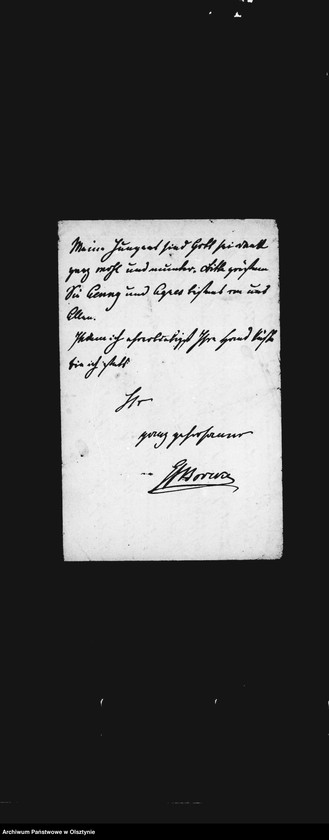 Meine Jungens sind Gott sei Dank
ganz wohl und munter. Bitte grüßen
Sie Conny und Agnes bestens von uns
Allen.
Indem ich ehrerbietigst Ihre Hand küsse
bin ich stets
Ihr
ganz gehorsamer
Archiwum Państwowe w Olsztynie